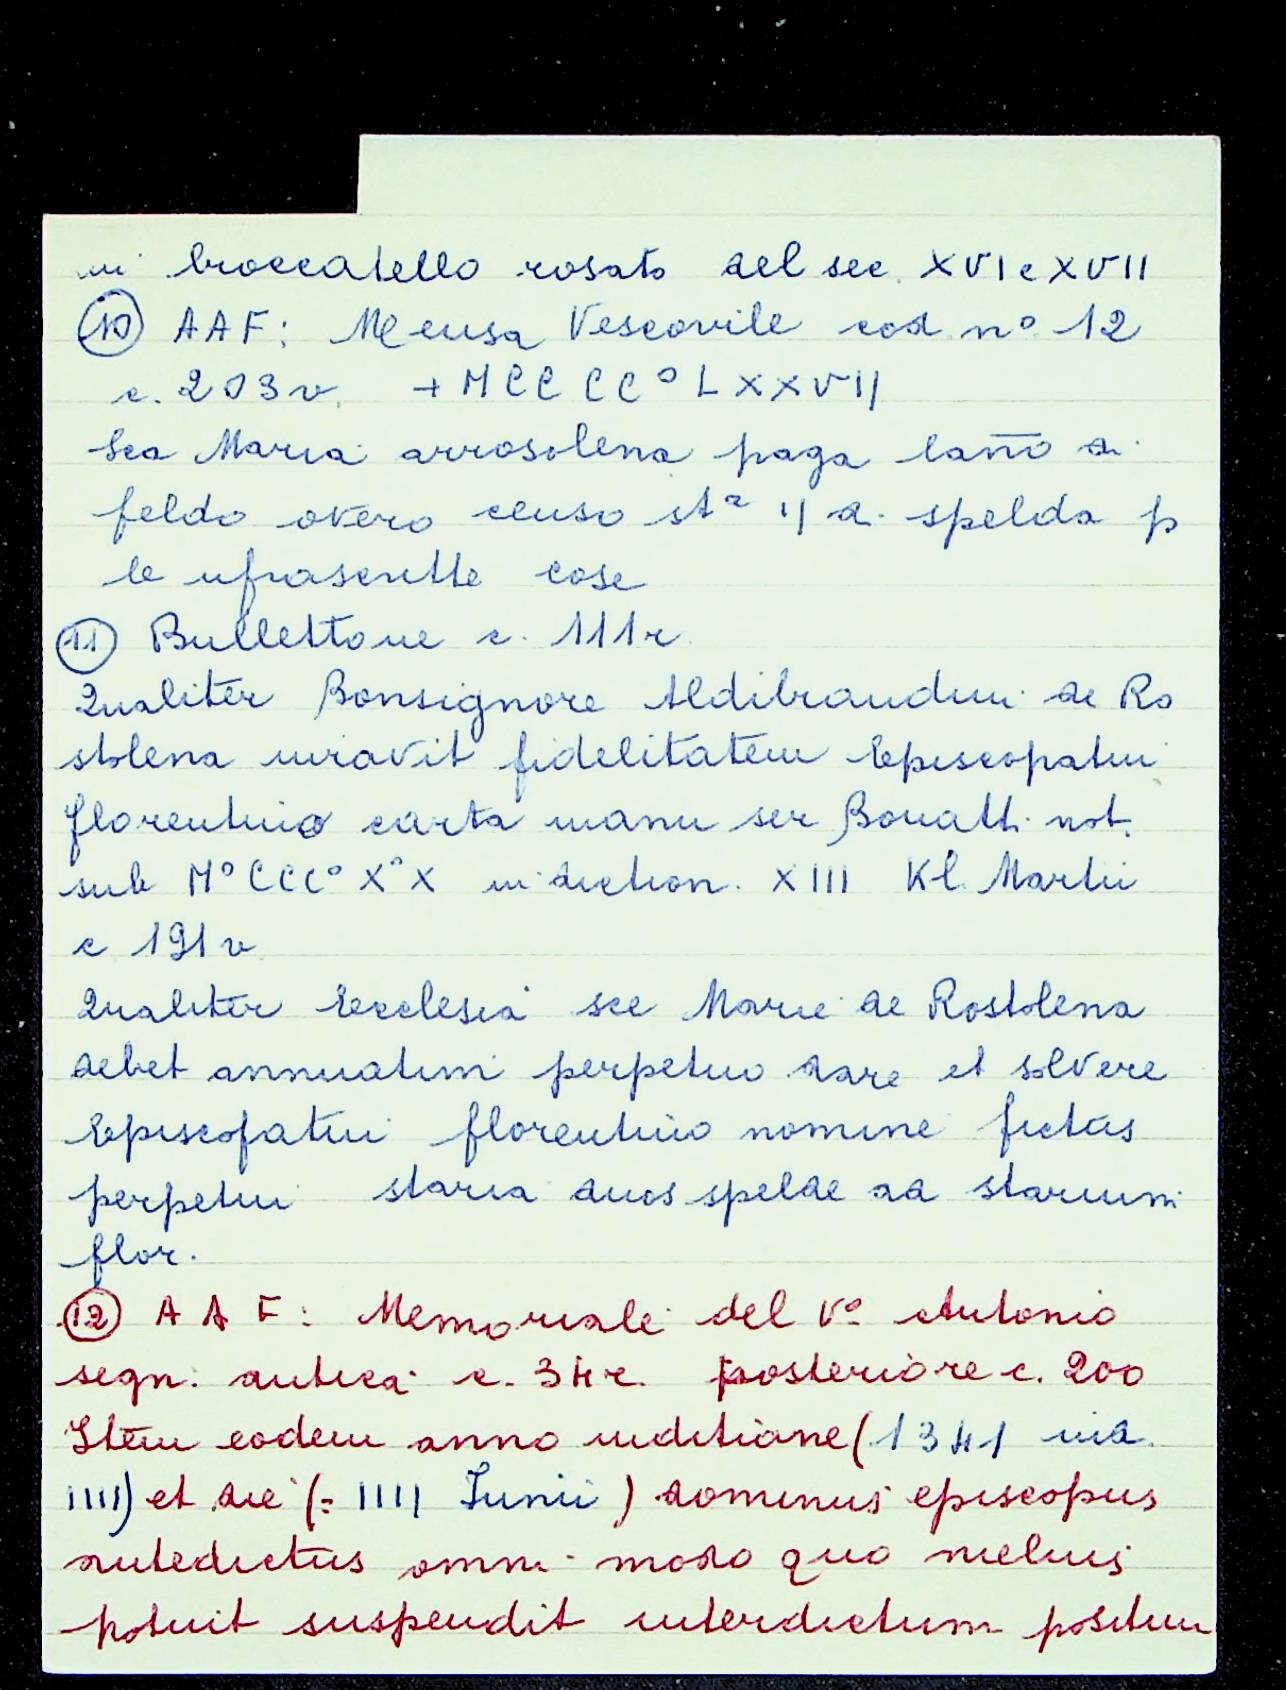 in broccatello rosato del sec. XVI e XVII
(10) AAF: Mensa Vescovile cod. n° 12
c. 203v. + MCCCC°LXXVII
Sca Maria arrosolena paga lanno di
feldo overo censo sta ij di spelda p
le infrascritte cose
(11) Bullettone c. 111r
Qualiter Bonsignore Aldibrandini de Ro
stolena iuravit fidelitatem Episcopatui
florentino carta manu ser Bonatti not.
sub M°CCC°X°X indiction. XIII Kl. Martii
c 191v
Qualiter Ecclesia sce Marie de Rostolena
debet annuatim perpetuo dare et solvere
Episcopatui florentino nomine fictus
perpetui staria duos spelde ad starium
flor.
(12) AAF: Memoriale del V° Antonio
segn. antica c. 34r. posteriore c. 200
Item eodem anno inditione (1341 ind.
IIII) et die (= IIII Iunii) dominus episcopus
antedictus omni modo quo melius
potuit suspendit interdictum positum